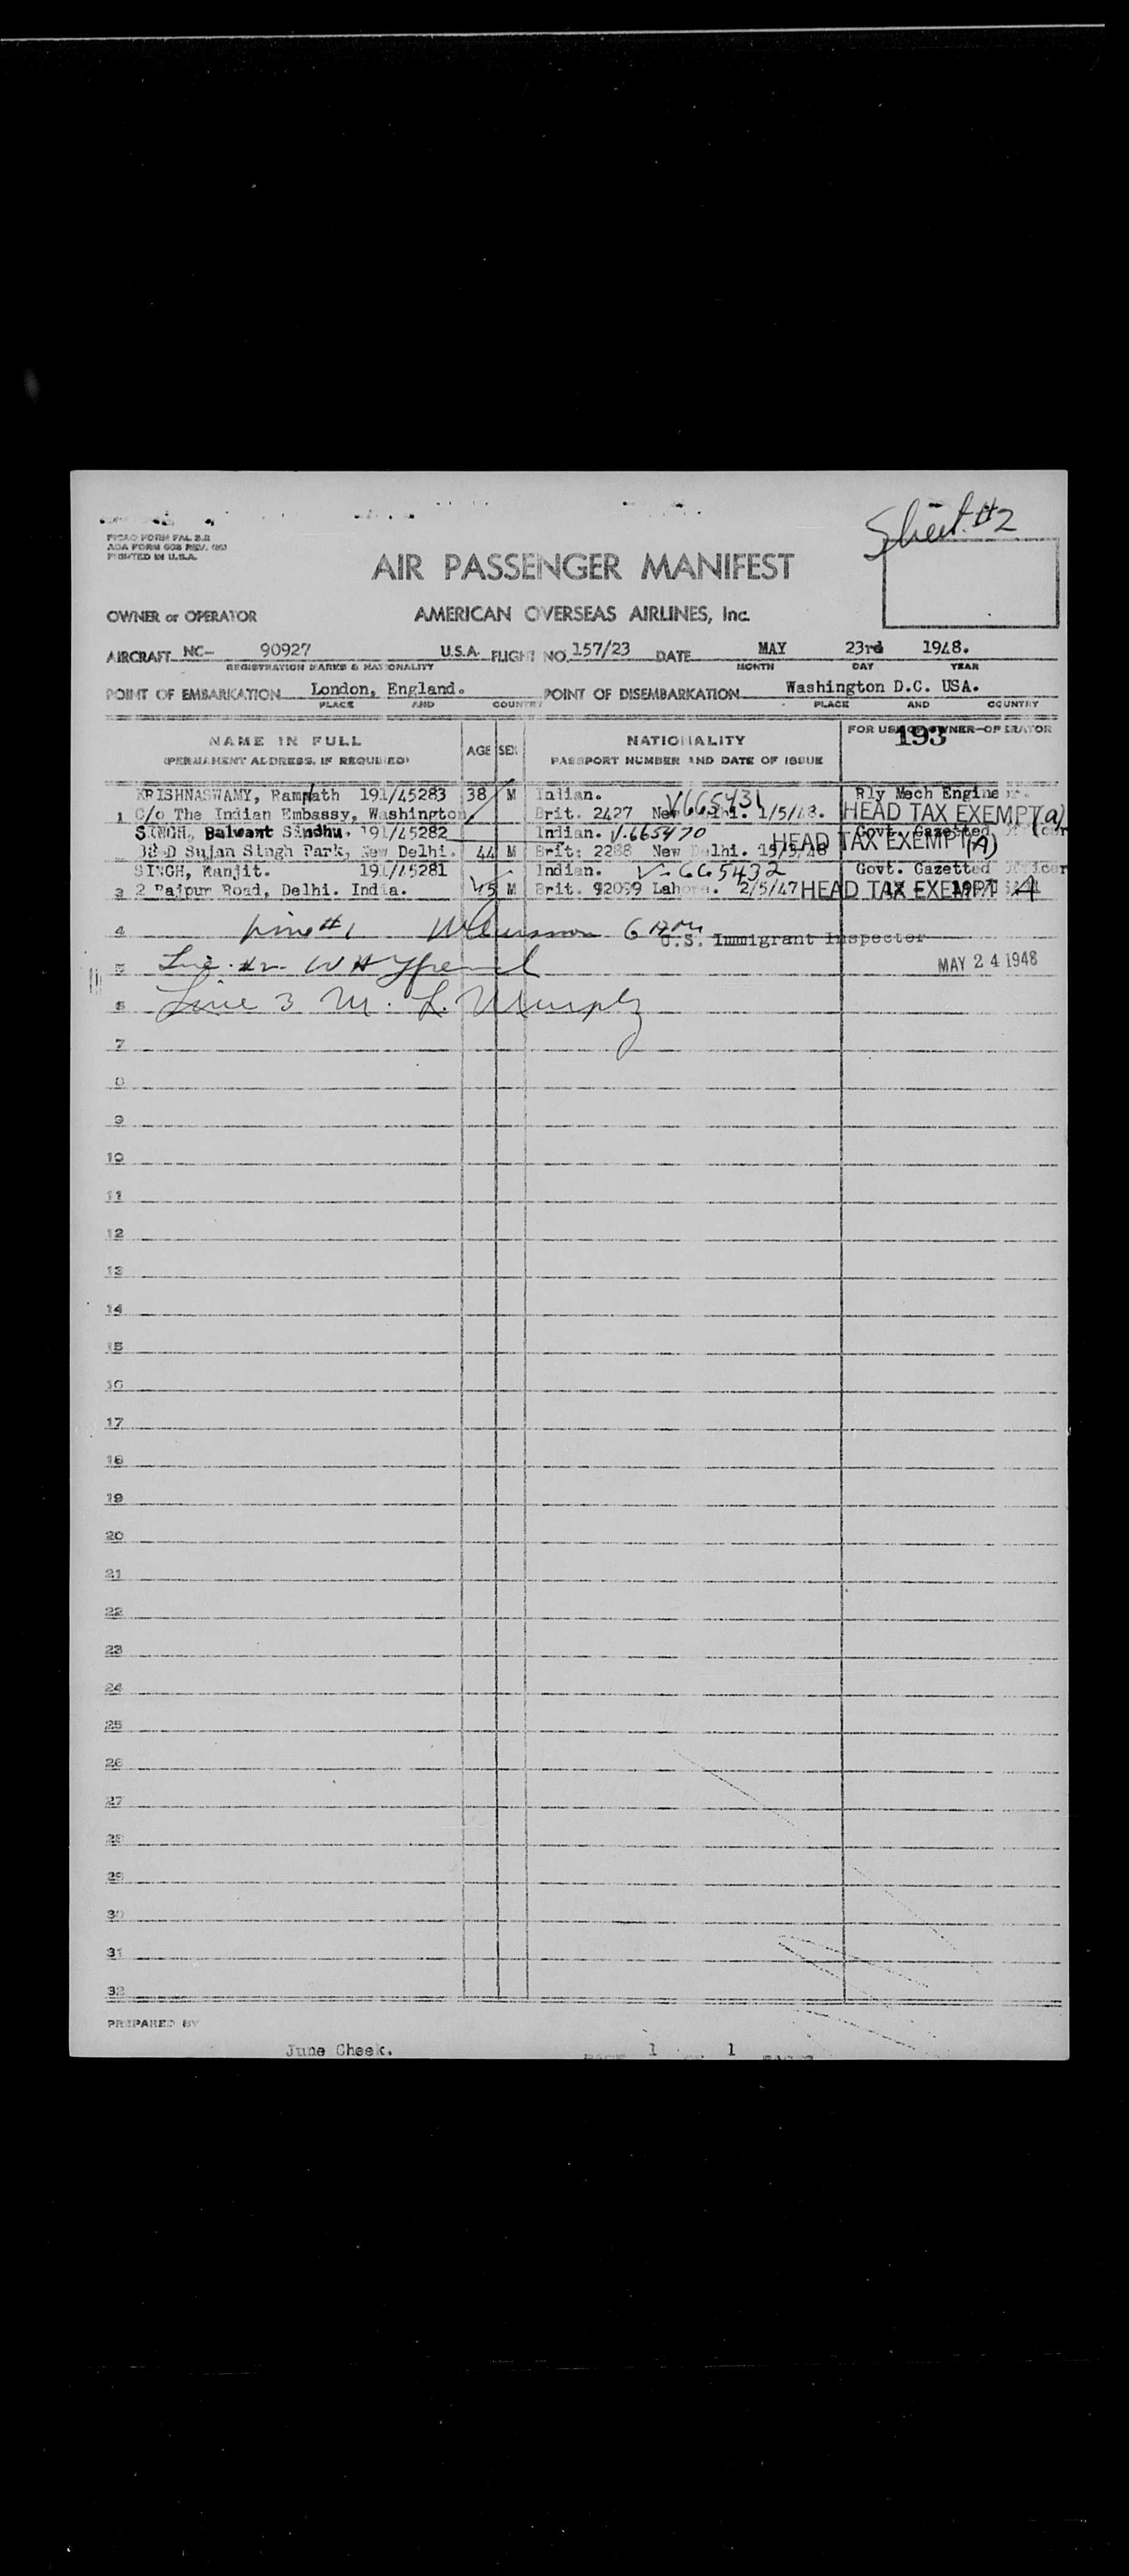 Sheet #2
PICAO FORM FAL 2.2
ADA FORM 608 REV.
PRINTED IN U.S.A.
AIR PASSENGER MANIFEST
OWNER or OPERATOR AMERICAN OVERSEAS AIRLINES, Inc.
AIRCRAFT NC- 90927 U.S.A. FLIGHT NO. 157/23 DATE MAY 23rd 1948.
REGISTRATION MARKS & NATIONALITY MONTH DAY YEAR
POINT OF EMBARKATION London, England. POINT OF DISEMBARKATION Washington D.C. USA.
PLACE AND COUNTRY PLACE AND COUNTRY
NAME IN FULL AGE SEX NATIONALITY FOR USE OF OWNER-OPERATOR
193
(PERMANENT ADDRESS, IF REQUIRED) PASSPORT NUMBER AND DATE OF ISSUE
KRISHNASWAMY, Ramnath 191/45283 38 M Indian. V665431 Rly Mech Engineer.
1 C/o The Indian Embassy, Washington. Brit. 2427 New Delhi. 1/5/48. HEAD TAX EXEMPT (a)
SINGH, Balwant Sindhu. 191/45282 Indian. V.665470 Govt. Gazetted Officer
32-D Sujan Singh Park, New Delhi. 44 M Brit: 2288 New Delhi. HEAD TAX EXEMPT (A)
SINGH, Ranjit. 191/45281 Indian. V-665432 Govt. Gazetted Officer
3 2 Rajpur Road, Delhi. India. 45 M Brit. 92099 Lahore. 2/5/47 HEAD TAX EXEMPT A
4 Line #1
U.S. Immigrant Inspector
5 Line #2 W H
MAY 24 1948
6 Line 3 M. L. Murphy
7
8
9
10
11
12
13
14
15
16
17
18
19
20
21
22
23
24
25
26
27
28
29
30
31
32
PREPARED BY
June Cheek. PAGE 1 OF 1 PAGES